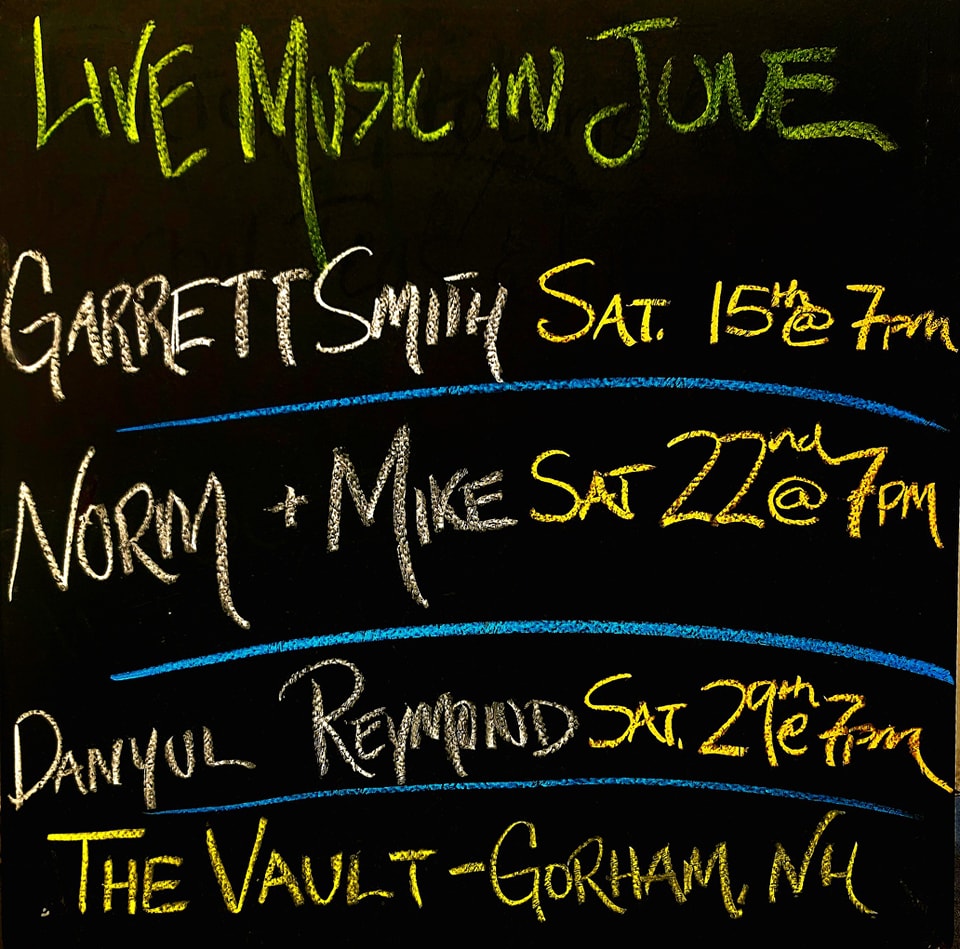 LIVE MUSIC IN JUNE
GARRETT SMITH SAT. 15th @ 7pm
NORM + MIKE SAT 22nd @ 7PM
DANYUL REYMOND SAT. 29th @ 7pm
THE VAULT - GORHAM, NH